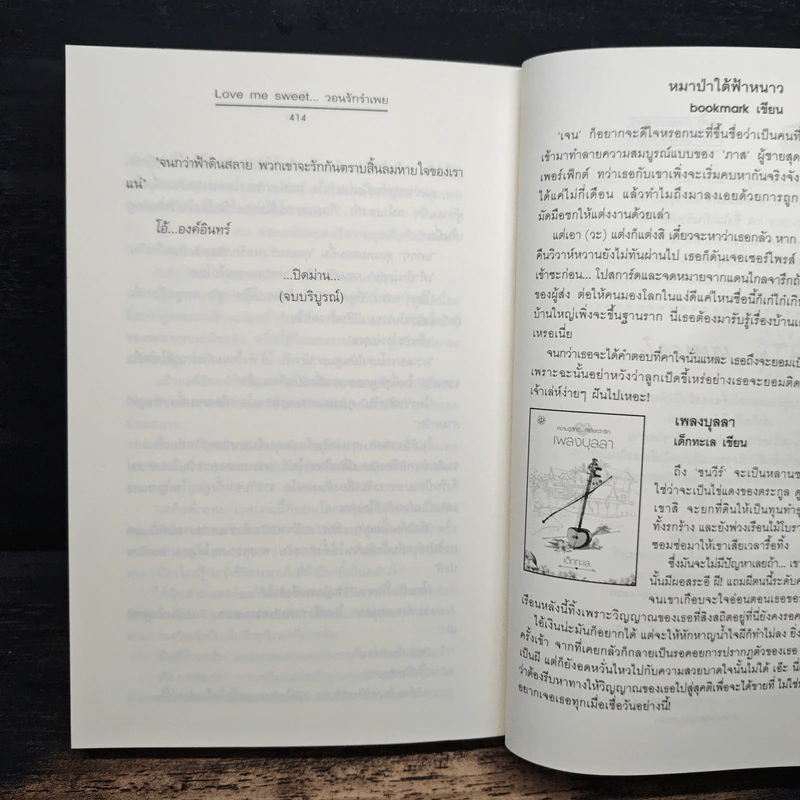 Love me sweet... วอนรักรำเพย
414
'จนกว่าฟ้าดินสลาย พวกเขาจะรักกันตราบสิ้นลมหายใจของเรา
แน่'
โอ้...องค์อินทร์
...ปิดม่าน...
(จบบริบูรณ์)
หมาป่าใต้ฟ้าหนาว
bookmark เขียน
'เจน' ก็อยากจะดีใจหรอกนะที่ขึ้นชื่อว่าเป็นคนที่
เข้ามาทำลายความสมบูรณ์แบบของ 'ภาส' ผู้ชายสุด
เพอร์เฟ็กต์ ทว่าเธอกับเขาเพิ่งจะเริ่มคบหากันจริงจัง
ได้แค่ไม่กี่เดือน แล้วทำไมถึงมาลงเอยด้วยการถูก
มัดมือชกให้แต่งงานด้วยเล่า
แต่เอา (วะ) แต่งก็แต่งสิ เดี๋ยวจะหาว่าเธอกลัว หาก
คืนวิวาห์หวานยังไม่ทันผ่านไป เธอก็ดันเจอเซอร์ไพรส์
เข้าซะก่อน... โปสการ์ดและจดหมายจากแดนไกลจารึกถ้
ของผู้ส่ง ต่อให้คนมองโลกในแง่ดีแค่ไหนชื่อนี้ก็เก๋ไก๋เกิ
บ้านใหญ่เพิ่งจะขึ้นฐานราก นี่เธอต้องมารับรู้เรื่องบ้านเ
เหรอเนี่ย
จนกว่าเธอจะได้คำตอบที่คาใจนั่นแหละ เธอถึงจะยอมเป็
เพราะฉะนั้นอย่าหวังว่าลูกเป็ดขี้เหร่อย่างเธอจะยอมติด
เจ้าเล่ห์ง่ายๆ ฝันไปเหอะ!
เพลงบุลลา
เด็กทะเล
เพลงบุลลา
เด็กทะเล เขียน
ถึง 'ชนวีร์' จะเป็นหลานช
ใช่ว่าจะเป็นไข่แดงของตระกูล ดู
เขาสิ จะยกที่ดินให้เป็นทุนทำธุ
ทั้งรกร้าง และยังพ่วงเรือนไม้โบรา
ซอมซ่อมาให้เขาเสียเวลารื้อทิ้ง
ซึ่งมันจะไม่มีปัญหาเลยถ้า... เขา
นั้นมีผอสระอี ผี! แถมผีตนนี้ระดับค
จนเขาเกือบจะใจอ่อนตอนเธอขอ
เรือนหลังนี้ทิ้งเพราะวิญญาณของเธอที่สิงสถิตอยู่ที่นี่ยังคงรอค
ไอ้เงินน่ะมันก็อยากได้ แต่จะให้หักหาญน้ำใจผีก็ทำไม่ลง ยิ่ง
ครั้งเข้า จากที่เคยกลัวก็กลายเป็นรอคอยการปรากฏตัวของเธอ
เป็นผี แต่ก็ยังอดหวั่นไหวไปกับความสวยบาดใจนั้นไม่ได้ เอ๊ะ นี่
ว่าต้องรีบหาทางให้วิญญาณของเธอไปสู่สุคติเพื่อจะได้ขายที่ ไม่ใช่ม
อยากเจอเธอทุกเมื่อเชื่อวันอย่างนี้!